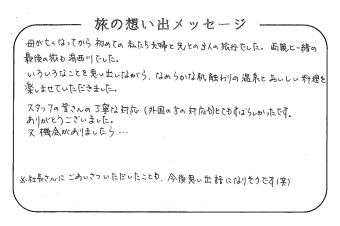 旅の想い出メッセージ
母が亡くなってから初めての私たち夫婦と兄との3人の旅行でした。両親と一緒の
最後の旅も湯西川でした。
いろいろなことを思い出しながら、なめらかな肌触わりの温泉とおいしい料理を
楽しませていただきました。
スタッフの皆さんの丁寧な対応(外国の方の対応も)とてもすばらしかったです。
ありがとうございました。
又機会がありましたら…
※社長さんにごあいさついただいたことも、今後思い出話になりそうです(笑)